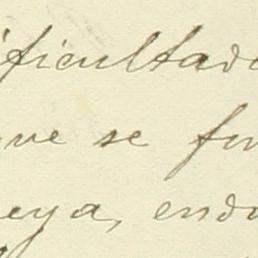 ificultado
que se fu
eya, endo